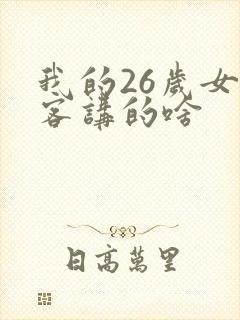 我的26歲女
客講的啥
日高萬里